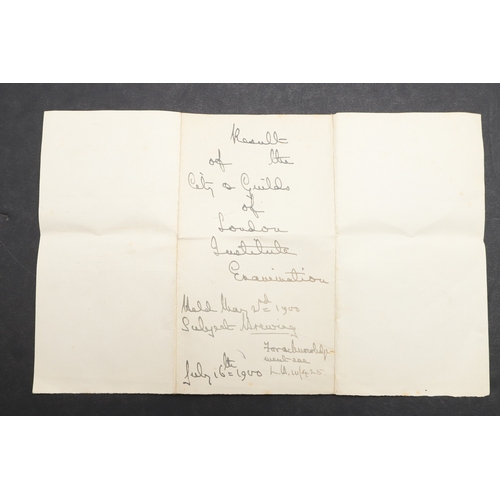 Result
of the
City & Guilds
of
London
Institute
Examination
Held May 2nd 1900
Subject Brewing
For acknowledge-
ment see
July 16th 1900